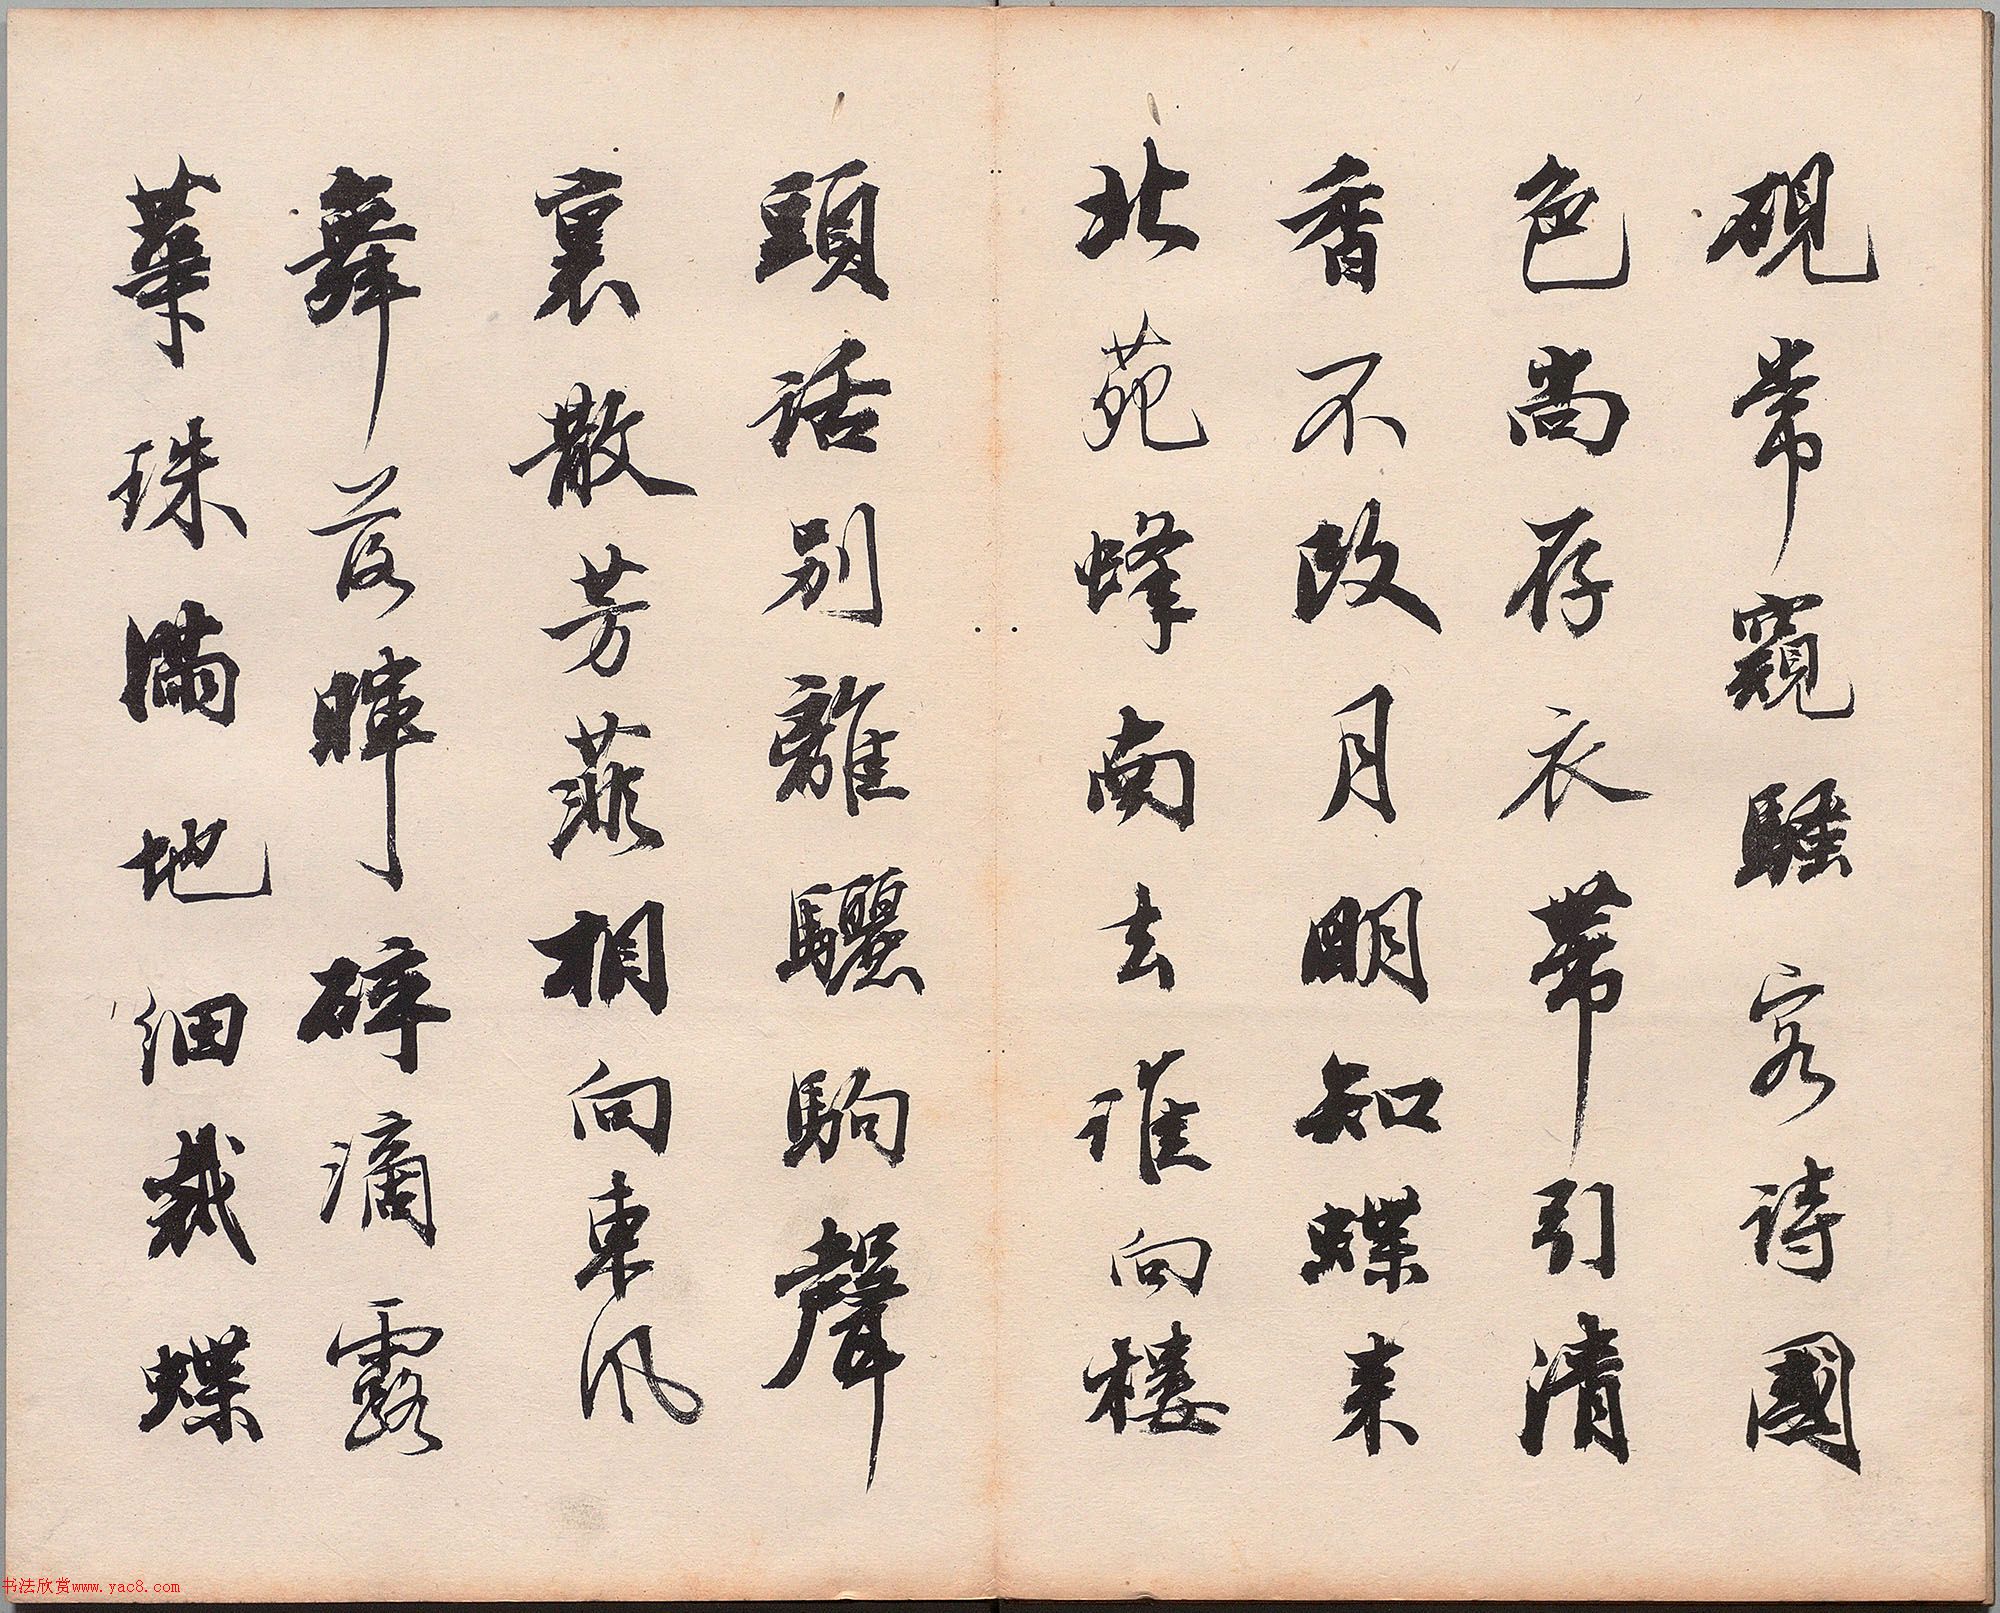 硯常窺騷客詩國
色尚存衣帶引清
香不改月明知蝶來
北苑蜂南去誰向樓
頭話別離驪駒聲
裏散芳菲相向東風
舞落暉碎滴露
華珠滿地細裁蝶
书法欣赏www.yac8.com